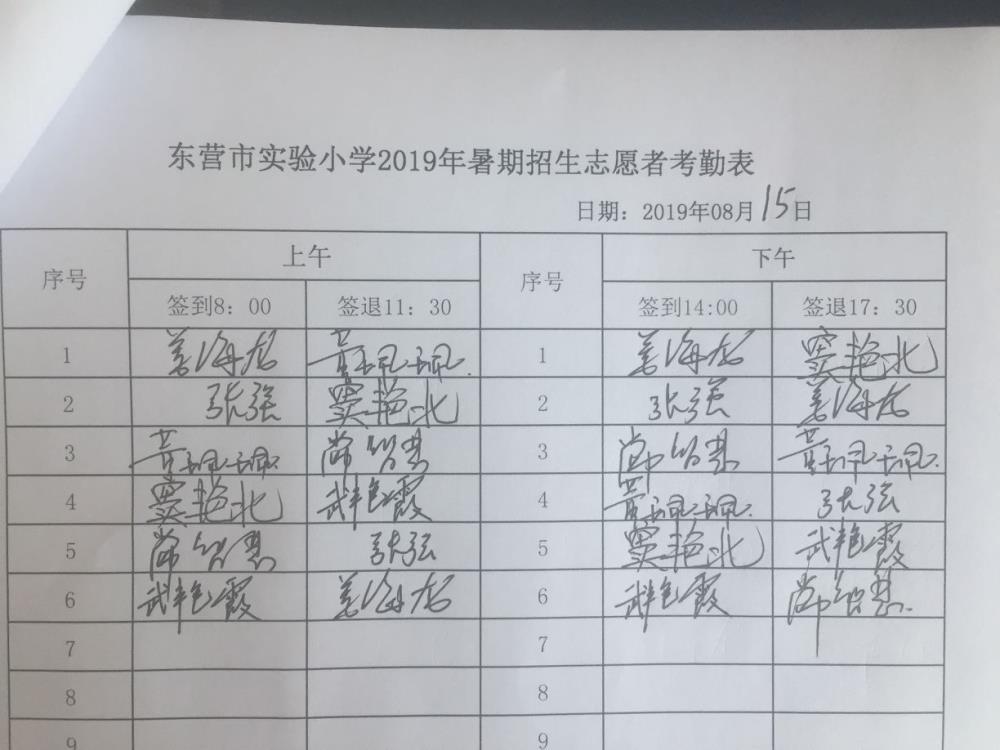 东营市实验小学2019年暑期招生志愿者考勤表
日期：2019年08月15日
序号 上午 序号 下午
签到8：00 签退11：30 签到14:00 签退17：30
1 姜海龙 黄珮珮. 1 姜海龙 窦艳北
2 张强 窦艳北 2 张强 姜海龙
3 黄珮珮. 尚智慧 3 尚智慧 黄珮珮.
4 窦艳北 武艳霞 4 黄珮珮. 张强
5 尚智慧 张强 5 窦艳北 武艳霞
6 武艳霞 姜海龙 6 武艳霞 尚智慧.
7 7
8 8
9 9